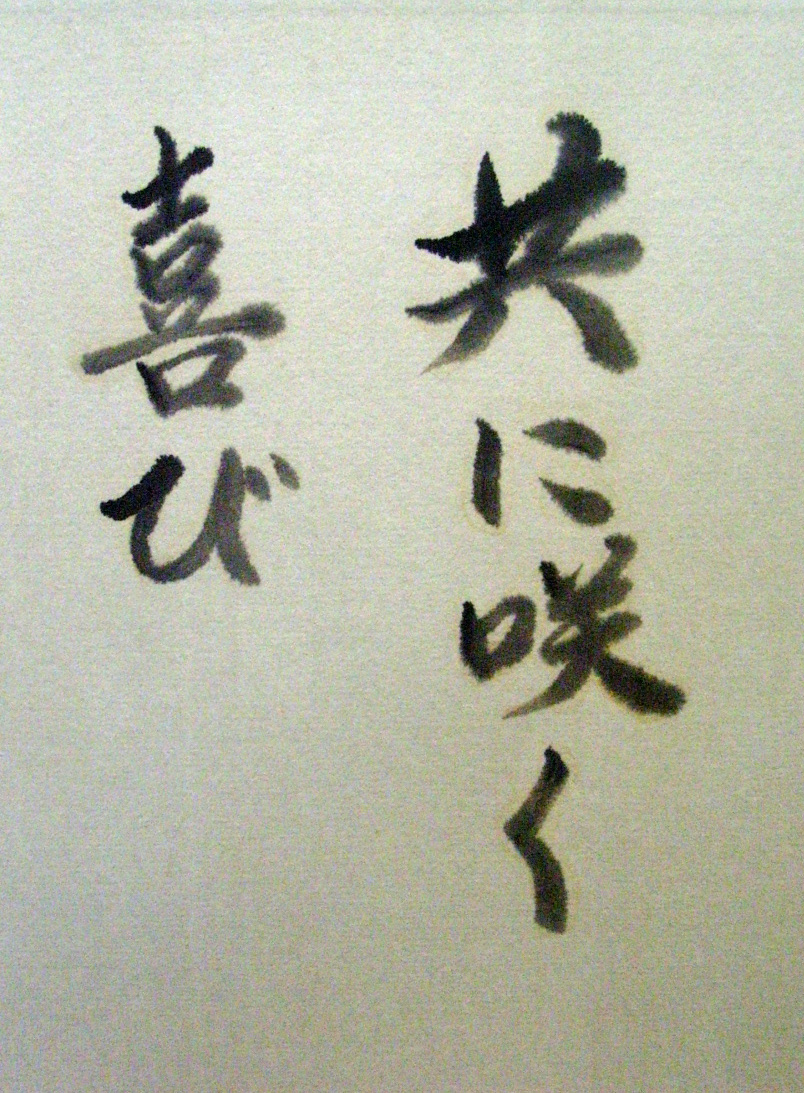 共に咲く
喜び